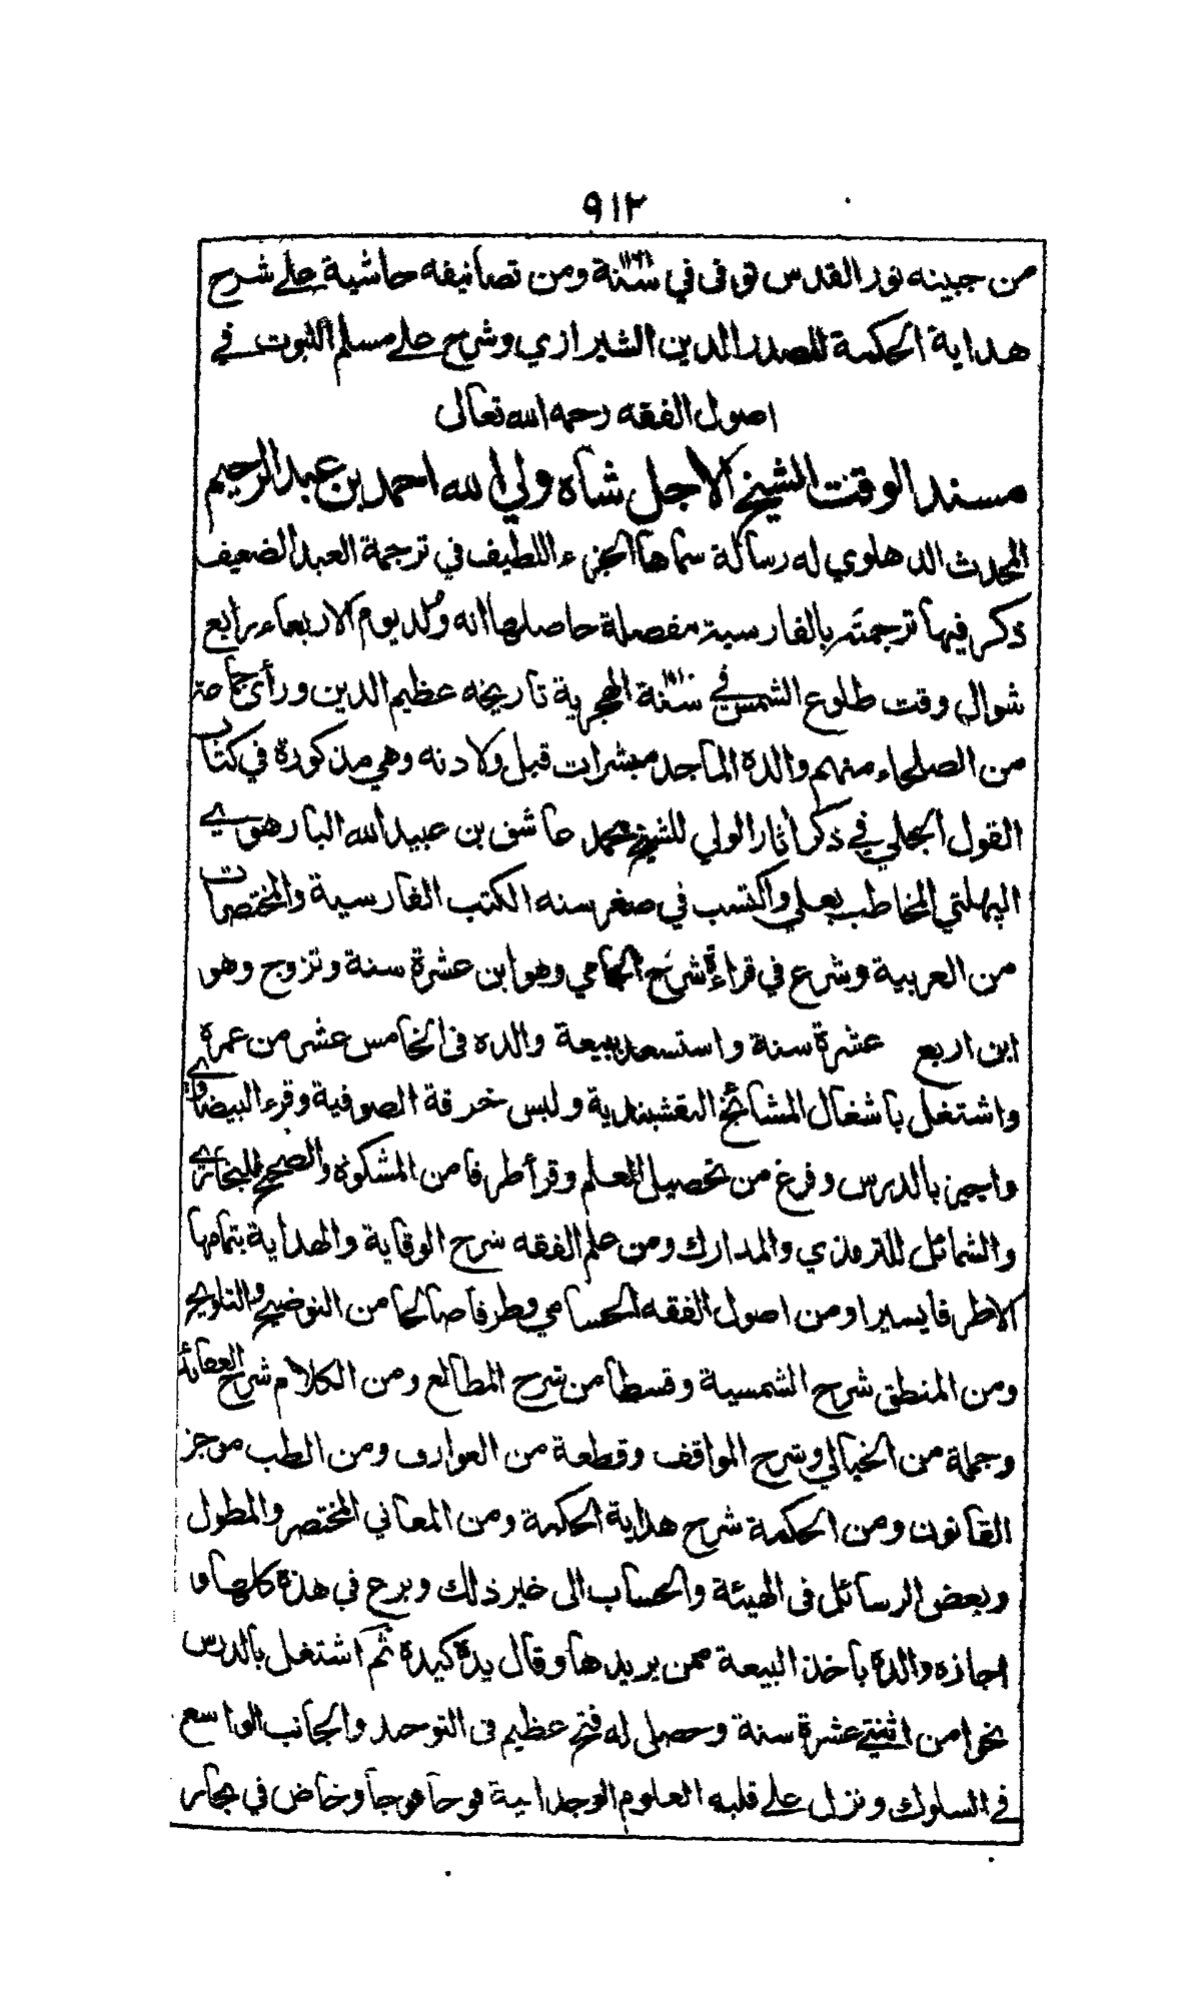 ٩١٢
من جبينه نور القدس توفى في سنة ١١٦١ ومن تصانيفه حاشية على شرح
هداية الحكمة للصدر الدين الشيرازي وشرح على مسلم الثبوت في
اصول الفقه رحمه الله تعالى
مسند الوقت الشيخ الاجل شاه ولي الله احمد بن عبد الرحيم
المحدث الدهلوي له رسالة سماها الجزء اللطيف في ترجمة العبد الضعيف
ذكر فيها ترجمته بالفارسية مفصلة حاصلها انه ولد يوم الاربعاء رابع
شوال وقت طلوع الشمس في سنة الهجرية تاريخه عظيم الدين ورأى جماعة
من الصلحاء منهم والده الماجد مبشرات قبل ولادته وهي مذكورة في كتاب
القول الجلي في ذكر اثار الولي للشيخ محمد عاشق بن عبيد الله البارهوي
البهلتي المخاطب بعلي واكتسب في صغر سنه الكتب الفارسية والمختصرات
من العربية وشرع في قراءة شرح الجامي وهو ابن عشرة سنة وتزوج وهو
ابن اربع عشرة سنة واستسعد ببيعة والده فى الخامس عشر من عمره
واشتغل باشغال المشائخ النقشبندية ولبس خرقة الصوفية وقرء البيضاوي
واجيز بالدرس وفرغ من تحصيل العلم وقرأ طرفا من المشكوة والصحيح للبخاري
والشمائل للترمذي والمدارك ومن علم الفقه شرح الوقاية والهداية بتمامها
الا طرفا يسيرا ومن اصول الفقه الحسامي وطرفا صالحا من التوضيح والتلويح
ومن المنطق شرح الشمسية وقسطا من شرح المطالع ومن الكلام شرح العقائد
وجملة من الخيالي وشرح المواقف وقطعة من العوارف ومن الطب موجز
القانون ومن الحكمة شرح هداية الحكمة ومن المعاني المختصر والمطول
وبعض الرسائل فى الهيئة والحساب الى غير ذلك وبرع في هذه كلها و
اجازه والده باخذ البيعة ممن يريدها وقال يده كيدة ثم اشتغل بالدرس
نحوا من اثنتي عشرة سنة وحصل له فتح عظيم فى التوحيد والجانب الواسع
في السلوك ونزل على قلبه العلوم الوجدانية فوجا فوجا وخاض في بحار